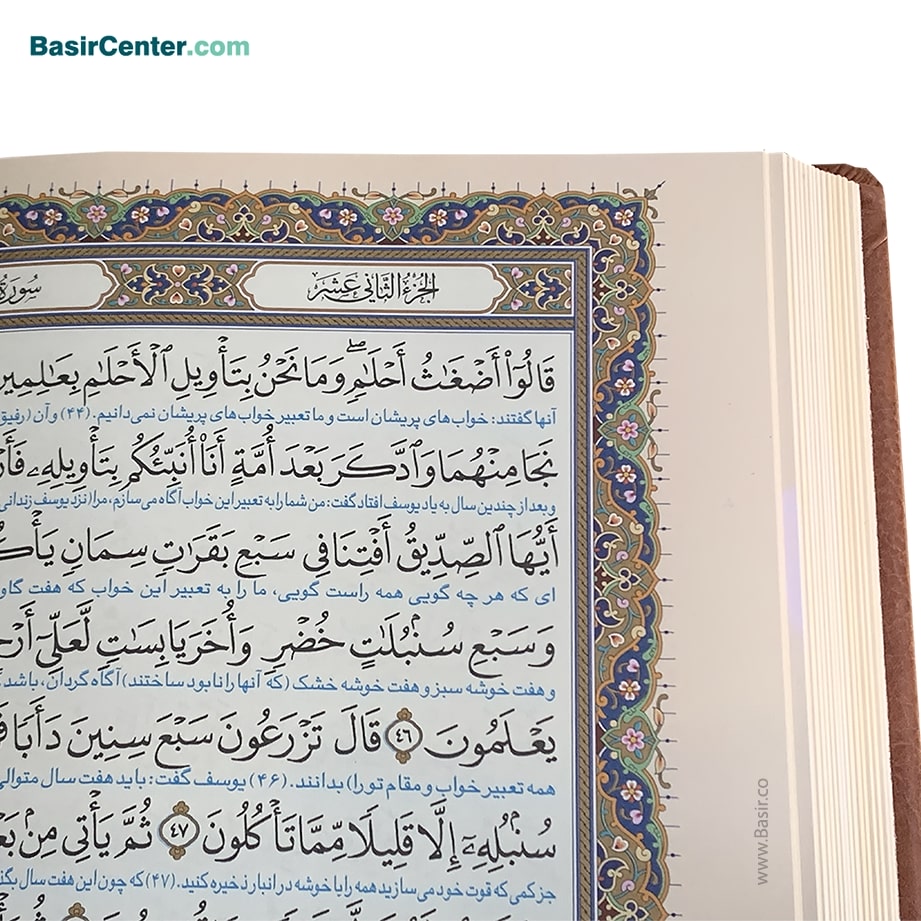 BasirCenter.com
الجزء الثاني عشر
سورة
قَالُوٓا۟ أَضْغَٰثُ أَحْلَٰمٍ ۖ وَمَا نَحْنُ بِتَأْوِيلِ ٱلْأَحْلَٰمِ بِعَٰلِمِينَ
آنها گفتند: خواب‌های پریشان است و ما تعبیر خواب‌های پریشان نمی‌دانیم. (۴۴) و آن (رفیق
نَجَا مِنْهُمَا وَٱدَّكَرَ بَعْدَ أُمَّةٍ أَنَا۠ أُنَبِّئُكُم بِتَأْوِيلِهِۦ
و بعد از چندین سال به یاد یوسف افتاد گفت: من شما را به تعبیر این خواب آگاه می‌سازم، مرا (نزد یوسف زندانی
أَيُّهَا ٱلصِّدِّيقُ أَفْتِنَا فِى سَبْعِ بَقَرَٰتٍ سِمَانٍ
ای که هر چه گویی همه راست گویی، ما را به تعبیر این خواب که هفت گاو
وَسَبْعِ سُنۢبُلَٰتٍ خُضْرٍ وَأُخَرَ يَابِسَٰتٍ لَّعَلِّىٓ
و هفت خوشه سبز و هفت خوشه خشک (که آنها را نابود ساختند) آگاه گردان، باشد
يَعْلَمُونَ ٤٦ قَالَ تَزْرَعُونَ سَبْعَ سِنِينَ دَأَبًا
همه تعبیر خواب و مقام تو را) بدانند. (۴۶) یوسف گفت: باید هفت سال متوالی
سُنۢبُلِهِۦٓ إِلَّا قَلِيلًا مِّمَّا تَأْكُلُونَ ٤٧ ثُمَّ يَأْتِى مِنۢ
جز کمی که قوت خود می‌سازید همه را با خوشه در انبار ذخیره کنید. (۴۷) که چون این هفت سال
www.Basir.co